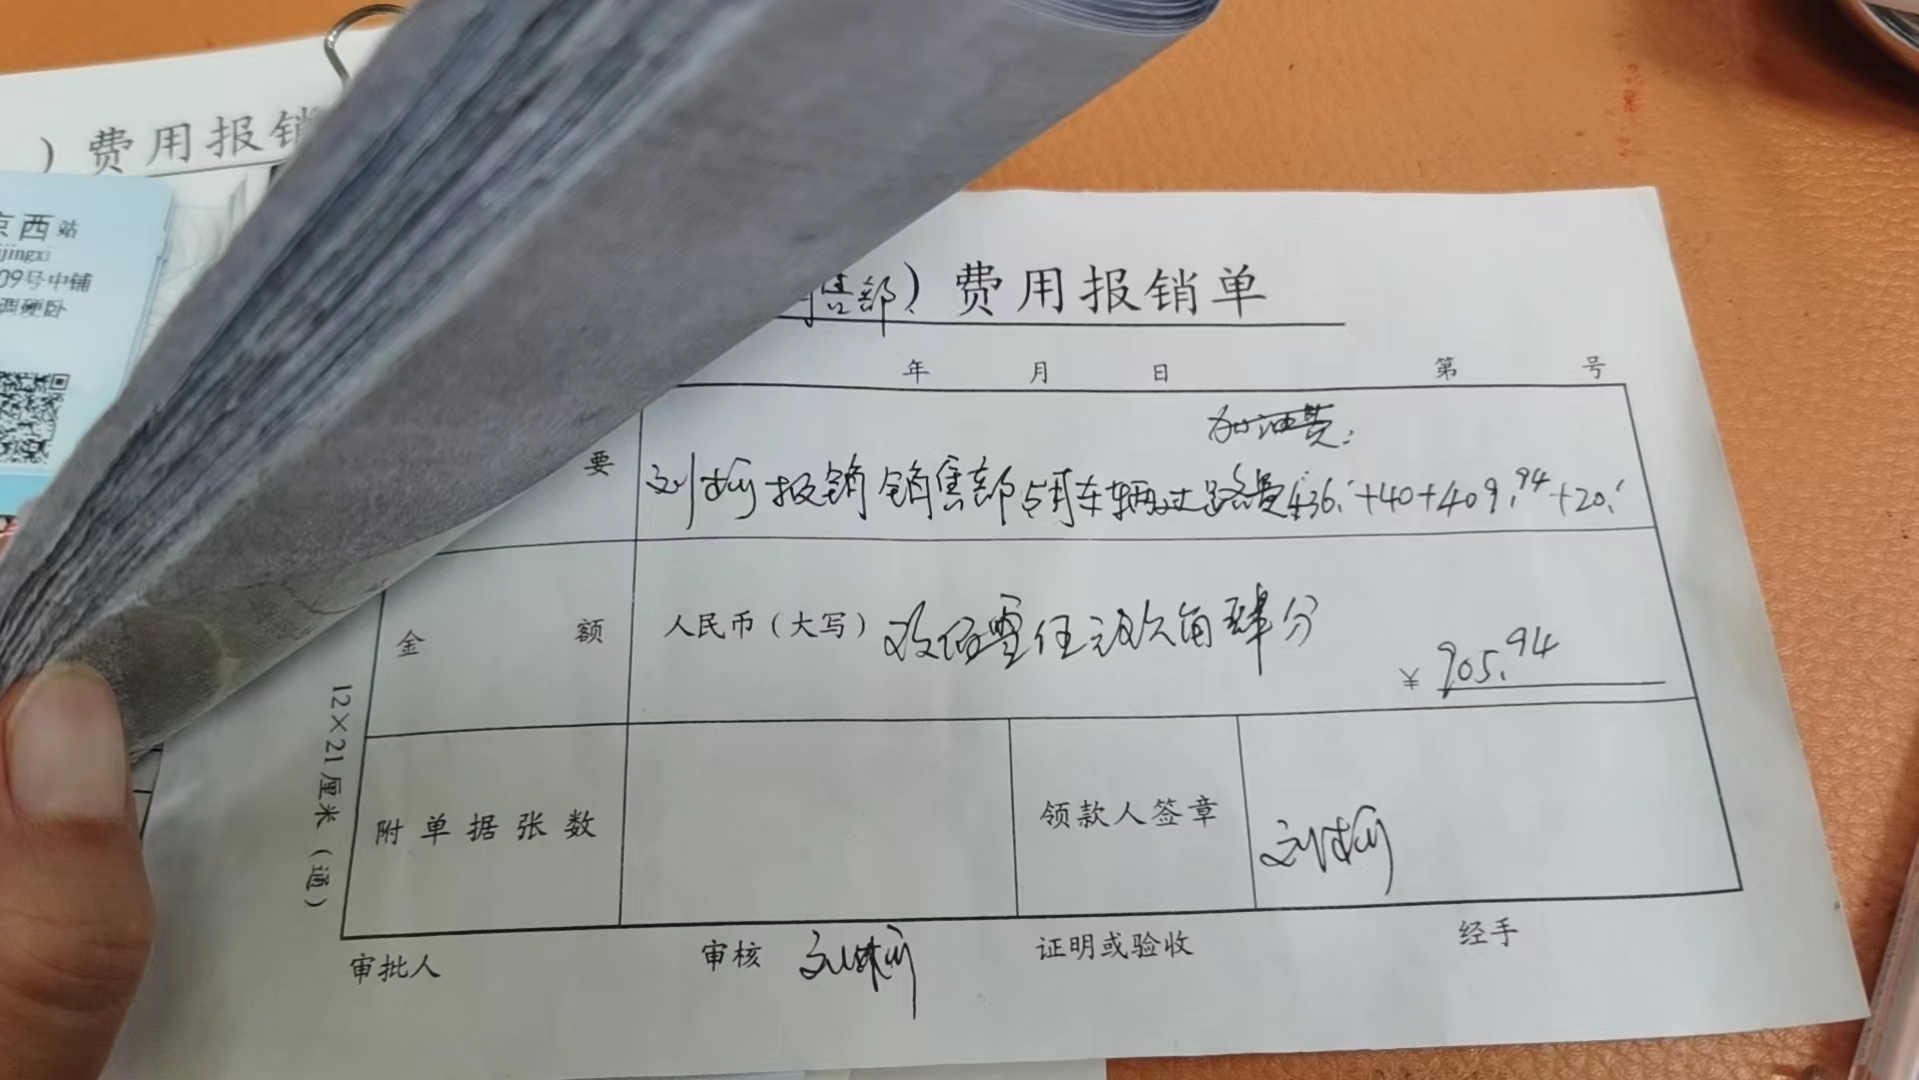 ）费用报销
京西站
jingxi
09号中铺
调硬卧
售部）费用报销单
年 月 日 第 号
加油费：
要 刘 报销 销售部 车辆过路费436.+40+409.94+20.
金 额 人民币（大写） 玖佰零伍元玖角肆分 ¥ 905.94
附单据张数 领款人签章 刘
审批人 审核 刘 证明或验收 经手
12×21厘米（通）